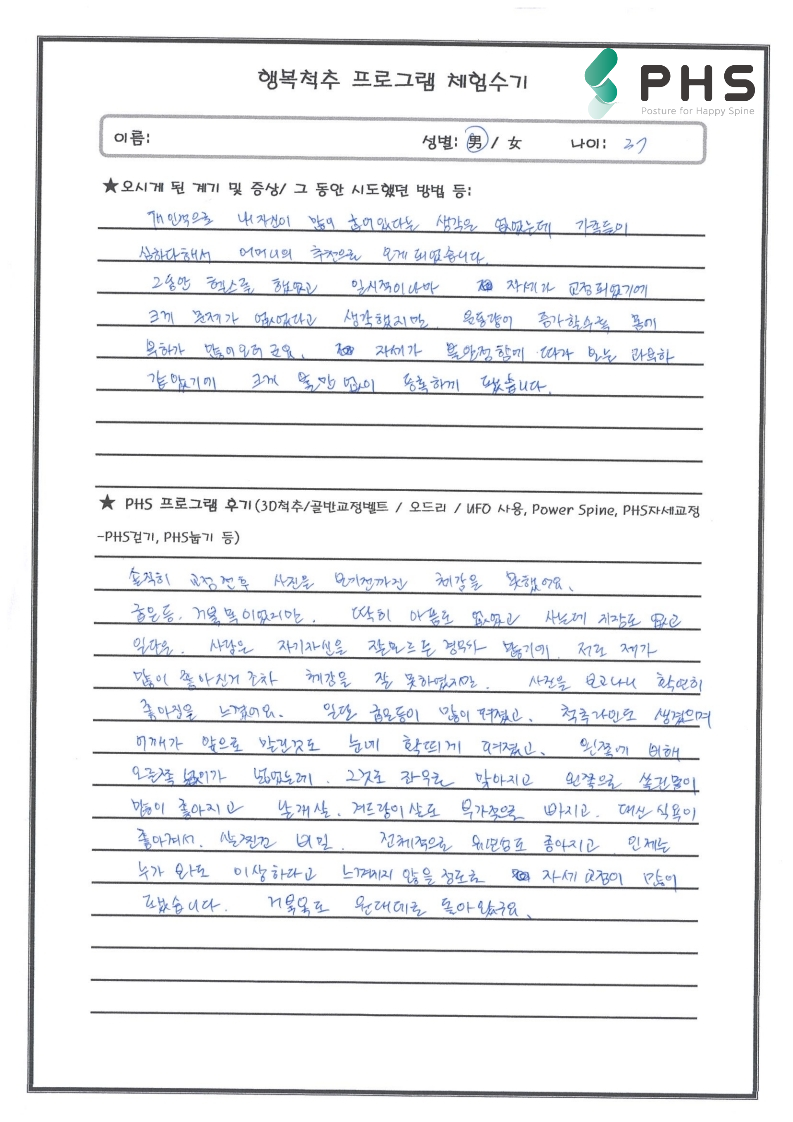 행복척추 프로그램 체험수기
PHS
Posture for Happy Spine
이름: 성별: 男 / 女 나이: 27
★오시게 된 계기 및 증상/ 그 동안 시도했던 방법 등:
개인적으로 내 자신이 많이 휘어있다는 생각은 없었는데 가족들이
심하다해서 어머니의 추천으로 오게 되었습니다.
그동안 헬스를 했었고 일시적이나마 자세가 교정되었기에
크게 문제가 없었다고 생각했지만, 운동량이 증가할수록 몸에
부하가 많이 오더군요. 자세가 불안정함에 따라 오는 과욕하
같았기에 크게 불만 없이 등록하게 됐습니다.
★ PHS 프로그램 후기(3D척추/골반교정벨트 / 오드리 / UFO 사용, Power Spine, PHS자세교정
-PHS걷기, PHS눕기 등)
솔직히 교정 전후 사진을 보기전까진 체감을 못했어요.
굽은등, 거북목이었지만, 딱히 아픔도 없었고 사는데 지장도 없고
일단은. 사람은 자기자신을 잘 모르는 경우가 많기에. 저도 제가
많이 좋아진거 조차 체감을 잘 못하였지만. 사진을 보고나니 확연히
좋아짐을 느꼈어요. 일단 굽은등이 많이 펴졌고, 척추라인도 생겼으며
어깨가 앞으로 말린것도 눈에 확띄게 펴졌고, 왼쪽에 비해
오른쪽 높이가 높았는데, 그것도 좌우로 맞아지고 왼쪽으로 쏠린몸이
많이 좋아지고 날개살, 겨드랑이살도 부가적으로 빠지고. 대신 식욕이
좋아져서, 살찐건 비밀. 전체적으로 뒷모습도 좋아지고 인제는
누가 와도 이상하다고 느껴지지 않을 정도로 자세 교정이 많이
됐습니다. 거북목도 원래대로 돌아왔구요.